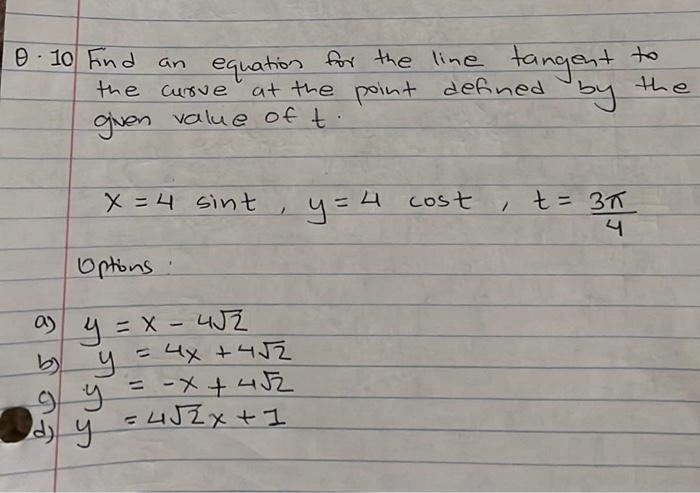 Q.10 Find an equation for the line tangent to
the curve at the point defined by the
given value of t.
x = 4 sint, y = 4 cost, t = 3π/4
Options:
a) y = x - 4√2
b) y = 4x + 4√2
c) y = -x + 4√2
d) y = 4√2x + 1